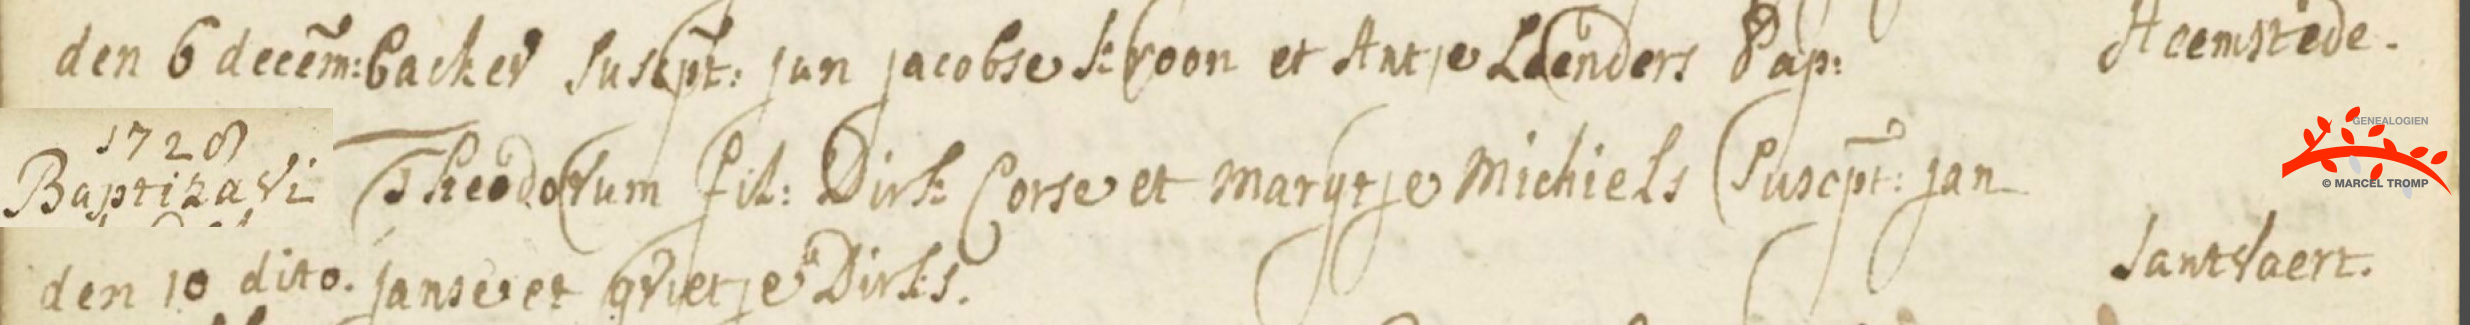 den 6 decēm: backer suscpt: jan jacobse kroon et Antje Leenders Pap: Heemstede.
1728
Baptizavi Theodorum fil: Dirk Corse et Marytje Michiels suscpt: jan
den 10 dito. janse et grietje Dirks. Santvaert.
GENEALOGIEN
© MARCEL TROMP